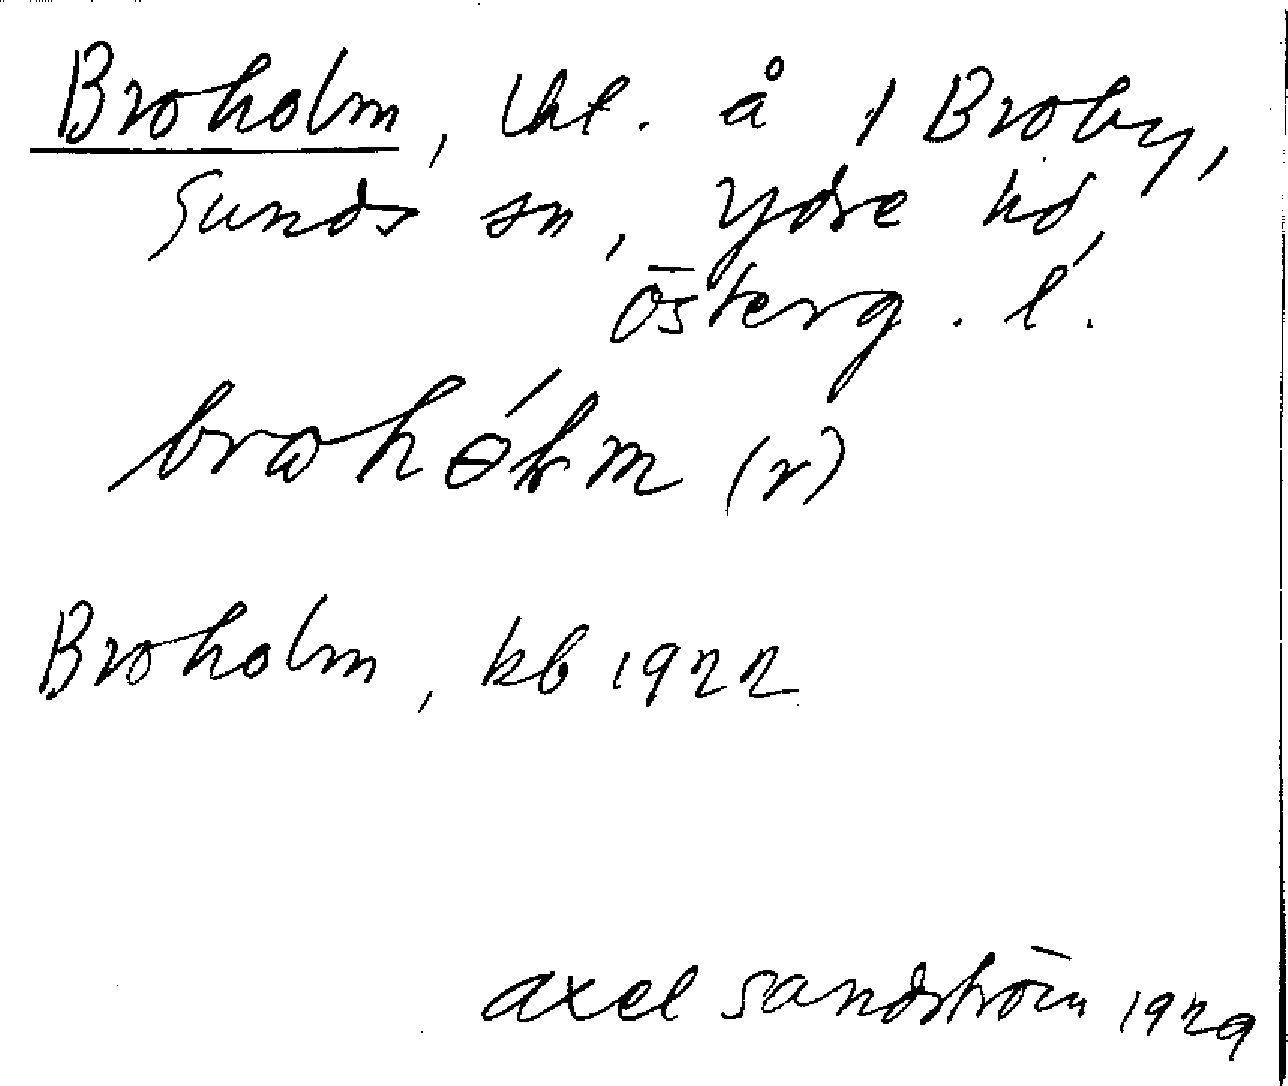 Broholm, lht. å 1 Broby,
Sunds sn, Ydre hd,
Österg. l.
broholm (r)
Broholm, kb 1922
Axel Sandström 1929